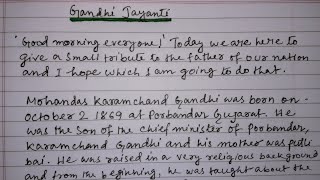 Gandhi Jayanti
'Good morning everyone,' Today we are here to
give a small tribute to the father of our nation
and I hope which I am going to do that.
Mohandas Karamchand Gandhi was born on
October 2 1869 at Porbandar Gujarat. He
was the son of the chief minister of Porbandar,
Karamchand Gandhi and his mother was
bai. He was raised in a very religious background
and from the beginning, he was taught about the